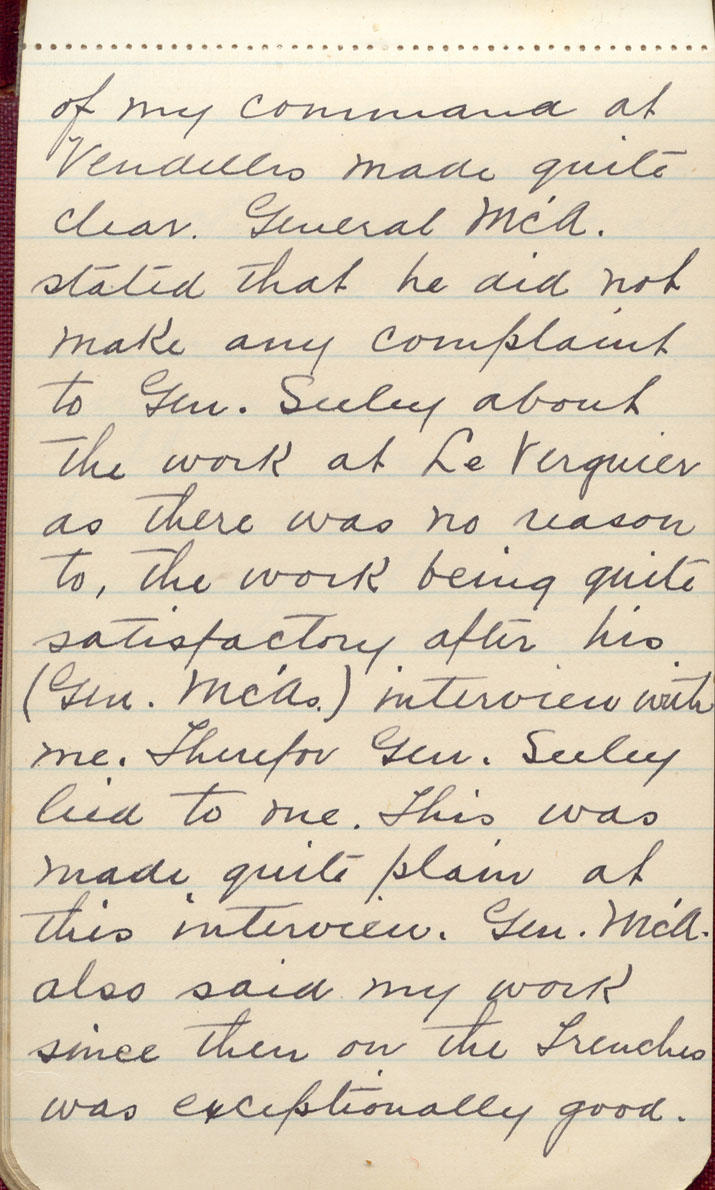 of my command at
Vendelles made quite
clear. General McA.
stated that he did not
make any complaint
to Gen. Seeley about
the work at Le Verguier
as there was no reason
to, the work being quite
satisfactory after his
(Gen. McAs.) interview with
me. Therefor Gen. Seeley
lied to me. This was
made quite plain at
this interview. Gen. McA.
also said my work
since then on the Trenches
was exceptionally good.